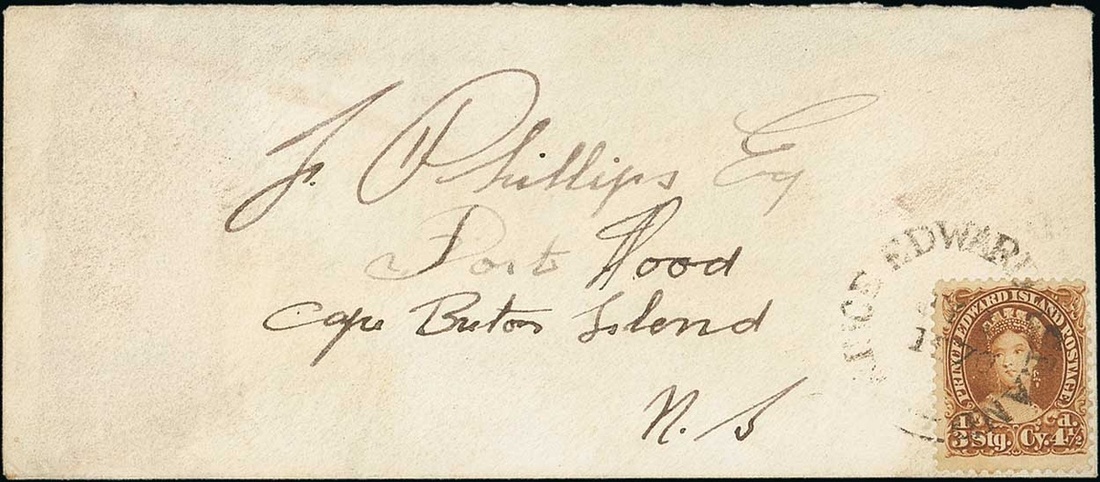 J. Phillips Esq
Port Hood
Cape Breton Island
N. S
PRINCE EDWARD
PRINCE EDWARD ISLAND POSTAGE
3d Stg. Cy. 4½d